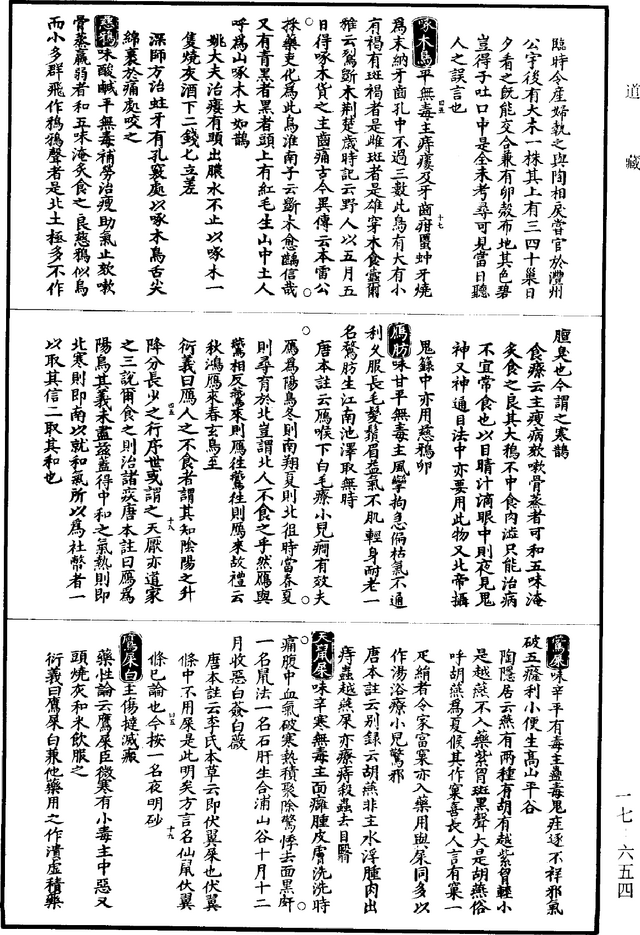 道藏
臨時令產婦執之與陶相戾嘗官於澧州
公宇後有大木一株其上有三四十巢日
夕看之既能交合兼有卵殼布地其色碧
豈得子吐口中是全未考尋可見當日聽
人之誤言也
啄木鳥平無毒主痔瘻及牙齒疳䘌蚛牙燒
為末納牙齒孔中不過三數此鳥有大有小
有褐有斑褐者是雌斑者是雄穿木食蠹爾
雅云鴷斲木荆楚歲時記云野人以五月五
日得啄木貨之主齒痛古今異傳云本雷公
採藥吏化為此鳥淮南子云斲木愈齲信哉
又有青黑者黑者頭上有紅毛生山中土人
呼為山啄木大如鵲
姚大夫治瘻有頭出膿水不止以啄木一
隻燒灰酒下二錢匕立差
深師方治蛀牙有孔竅處以啄木鳥舌尖
綿裹於痛處咬之
慈鵶味酸鹹平無毒補勞治瘦助氣止欬嗽
骨蒸羸弱者和五味淹炙食之良慈鴉似烏
而小多群飛作鵶鵶聲者是北土極多不作
膻臭也今謂之寒鵶
食療云主瘦病欬嗽骨蒸者可和五味淹
炙食之良其大鴉不中食肉澁只能治病
不宜常食也以目睛汁滴眼中則夜見鬼
神又神通目法中亦要用此物又北帝攝
鬼錄中亦用慈鴉卵
鴈肪味甘平無毒主風攣拘急偏枯氣不通
利久服長毛髮鬚眉益氣不飢輕身耐老一
名鶩肪生江南池澤取無時
唐本註云鴈喉下白毛療小兒癎有效夫
鴈為陽鳥冬則南翔夏則北徂時當春夏
則孳育於北豈謂北人不食之乎然鴈與
鷰相反鷰來則鴈往鷰往則鴈來故禮云
秋鴻鴈來春玄鳥至
衍義曰鴈人之不食者謂其知陰陽之升
降分長少之行序世或謂之天厭亦道家
之三說爾食之則治諸疾唐本註曰鴈為
陽鳥其義未盡茲蓋得中和之氣熱則即
北寒則即南以就和氣所以為社幣者一
以取其信二取其和也
鷰屎味辛平有毒主蠱毒鬼疰逐不祥邪氣
破五癃利小便生高山平谷
陶隱居云燕有兩種有胡有越紫胷輕小
是越燕不入藥紫胷斑黑聲大是胡燕俗
呼胡燕為夏候其作窠喜長人言有窠一
疋絹者令家富窠亦入藥用與屎同多以
作湯浴療小兒驚邪
唐本註云别録云胡燕非主水浮腫肉出
痔蟲越燕屎亦療痔殺蟲去目瞖
天鼠屎味辛寒無毒主面癰腫皮膚洗洗時
痛腹中血氣破寒熱積聚除驚悸去面黑皯
一名鼠法一名石肝生合浦山谷十月十二
月收惡白蘞白薇
唐本註云李氏本草云即伏翼屎也伏翼
條中不用屎是此明矣方言名仙鼠伏翼
條已論也今按一名夜明砂
鷹屎白主傷撻滅瘢
藥性論云鷹屎臣微寒有小毒主中惡又
頭燒灰和米飲服之
衍義曰鷹屎白兼他藥用之作潰虛積藥
四五
十七
四五
十八
四五
十九
一七·六五四